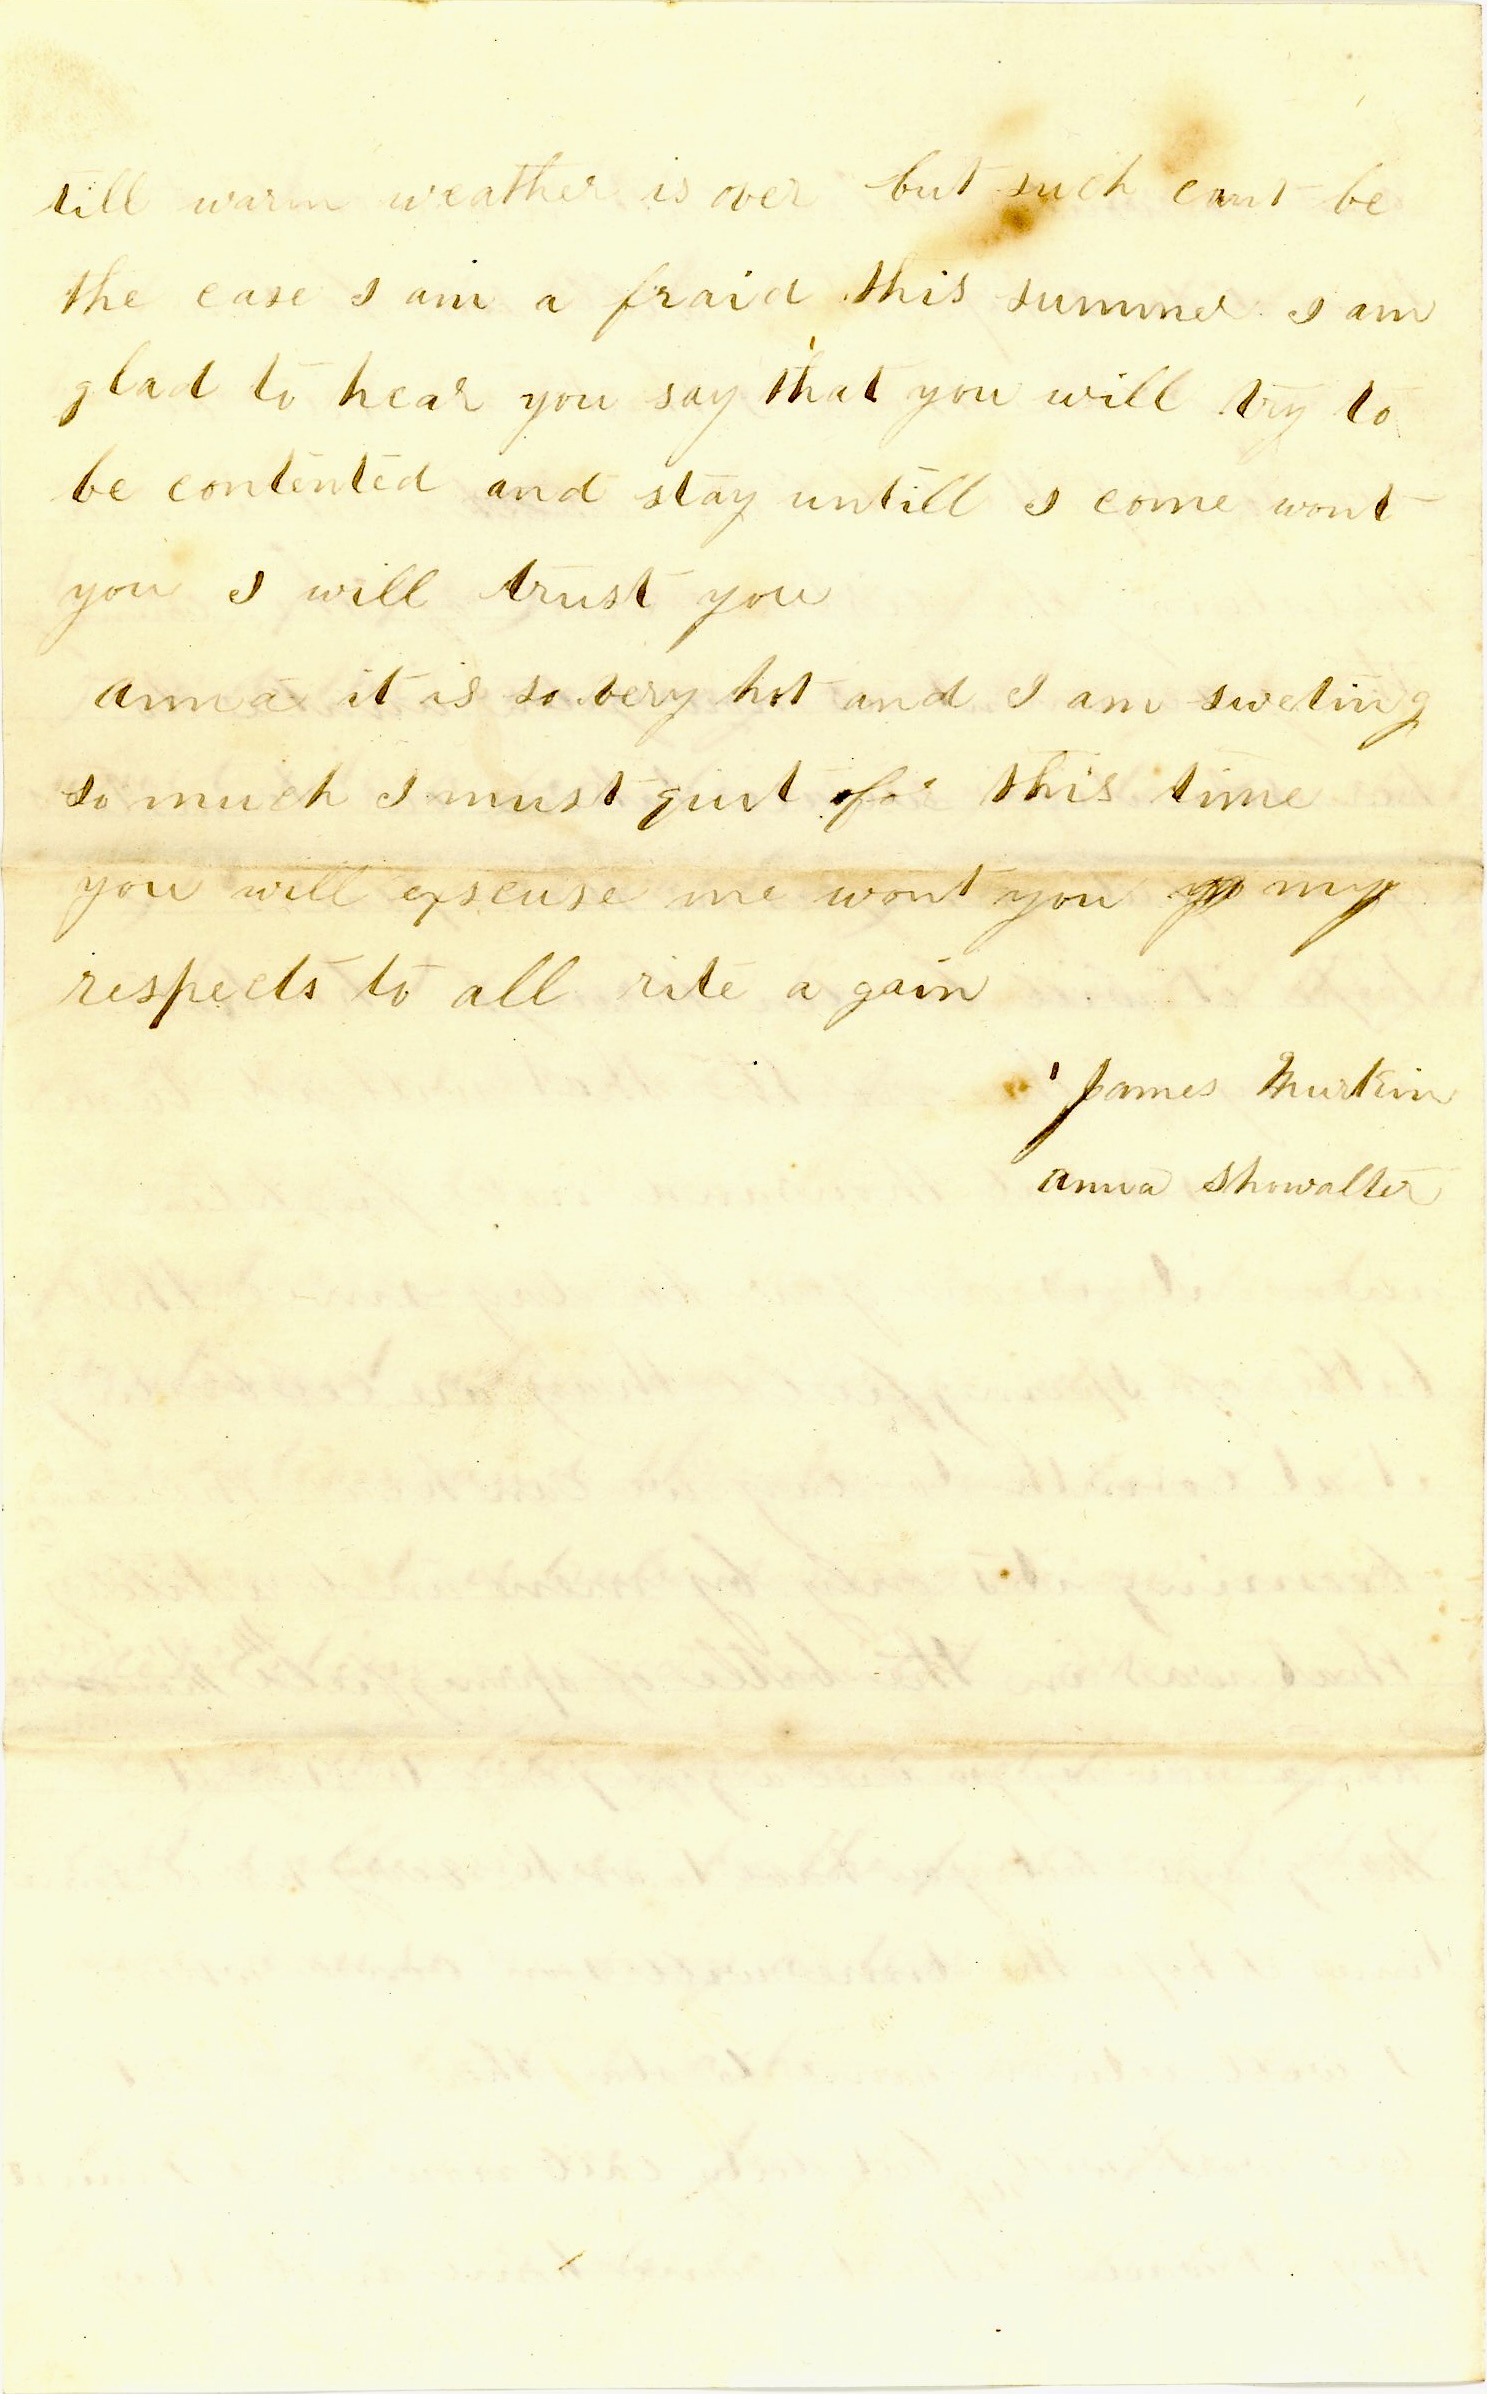 till warm weather is over but such cant be
the case I am a fraid this summer I am
glad to hear you say that you will try to
be contented and stay untill I come wont
you I will trust you
anna it is so very hot and I am sweting
so much I must quit for this time
you will exscuse me wont you my
respects to all rite a gain
James Murtin
anna Showalter